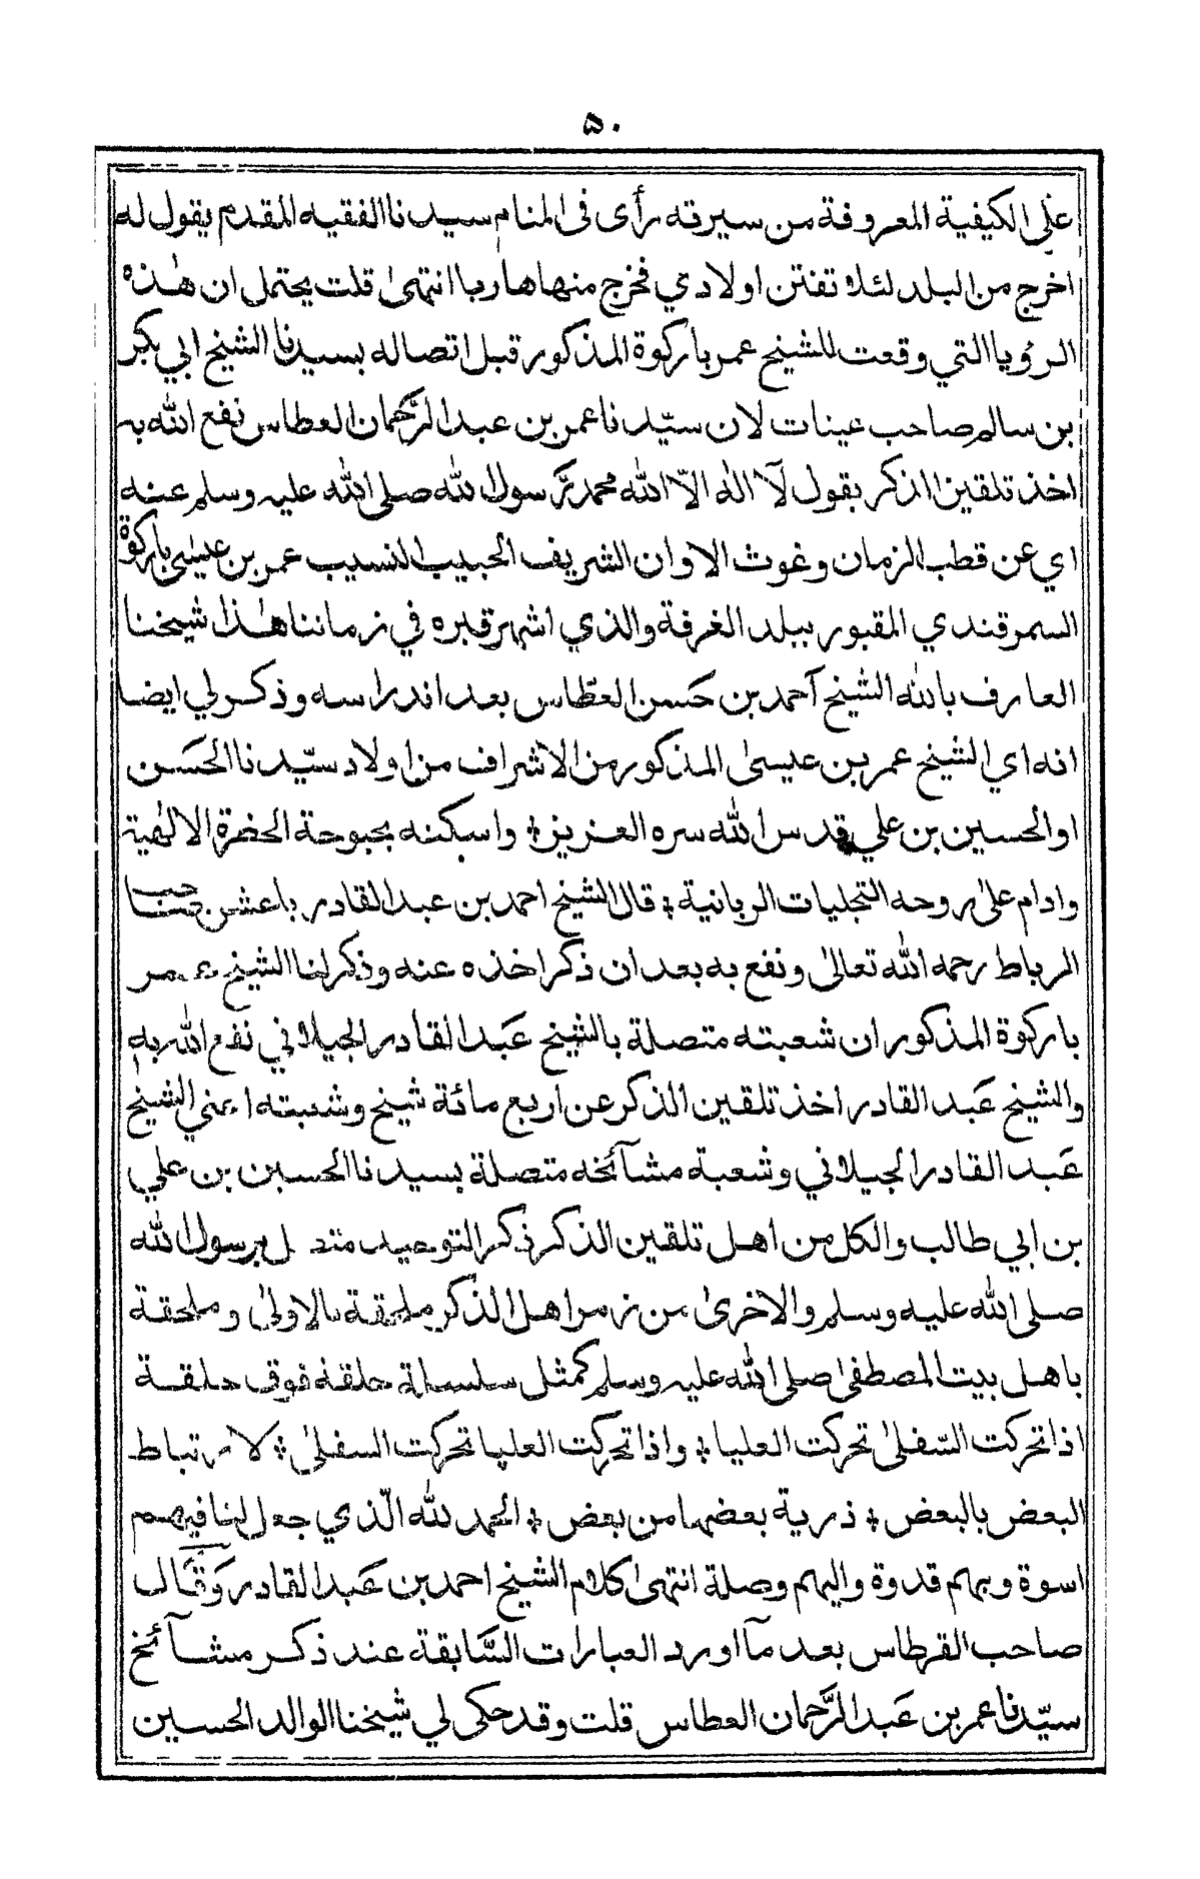 ٥٠
على الكيفية المعروفة من سيرته رأى فى المنام سيدنا الفقيه المقدم يقول له
اخرج من البلد لئلا تفتن اولادي فخرج منها هاربا انتهىٰ قلت يحتمل ان هٰذه
الرؤيا التي وقعت للشيخ عمر باركوة المذكور قبل اتصاله بسيدنا الشيخ ابي بكر
بن سالم صاحب عينات لان سيّدنا عمر بن عبد الرَّحمان العطاس نفع الله به
اخذ تلقين الذكر بقول لآ اله الاّ الله محمد رَّسول الله صلى الله عليه وسلم عنه
اي عن قطب الزمان وغوث الاوان الشريف الحبيب النسيب عمر بن عيسى باركوة
السمرقندي المقبور ببلد الغرفة والذي اشهر قبره في زماننا هٰذا شيخنا
العارف بالله الشيخ آحمد بن حَسن العطّاس بعد اندراسه وذكر لي ايضا
انه اي الشيخ عمر بن عيسىٰ المذكور من الاشراف من اولاد سيّدنا الحَسن
او الحسين بن علي قدس الله سره العزيز ؛ واسكنه بحبوحة الحضرة الالٰهية
وادام علىٰ روحه التجليات الربانية ؛ قال الشيخ احمد بن عبد القادر باعشن صاحب
الرباط رحمه الله تعالىٰ ونفع به بعد ان ذكر اخذه عنه وذكر لنا الشيخ عمر
باركوة المذكور ان شعبته متصلة بالشيخ عَبد القادر الجيلاني نفع الله به
والشيخ عَبد القادر اخذ تلقين الذكر عن اربع مائة شيخ وشعبته ايمني الشيخ
عَبد القادر الجيلاني وشعبة مشآئخه متصلة بسيدنا الحسين بن علي
بن ابي طالب والكل من اهل تلقين الذكر ذكر التوحيد متصل برسول الله
صلى الله عليه وسلم والاخرىٰ من زمر اهل الذكر ملحقة بالاولىٰ وملحقة
باهل بيت المصطفىٰ صلى الله عليه وسلم كمثل سلسلة حلقة فوق حلقة
اذا تحركت السّفلىٰ تحركت العليا ؛ واذا تحركت العليا تحركت السفلىٰ ؛ لارتباط
البعض بالبعض ؛ ذرية بعضها من بعض ؛ الحمد لله الّذي جعل لنا فيهم
اسوة وبهم قدوة واليهم وصلة انتهىٰ كلام الشيخ احمد بن عَبد القادر وَقَال
صاحب القرطاس بعد مآ اورد العبارات السَّابقة عند ذكر مشآئخ
سيّدنا عمر بن عَبد الرَّحمان العطاس قلت وقد حكى لي شيخنا الوالد الحسين